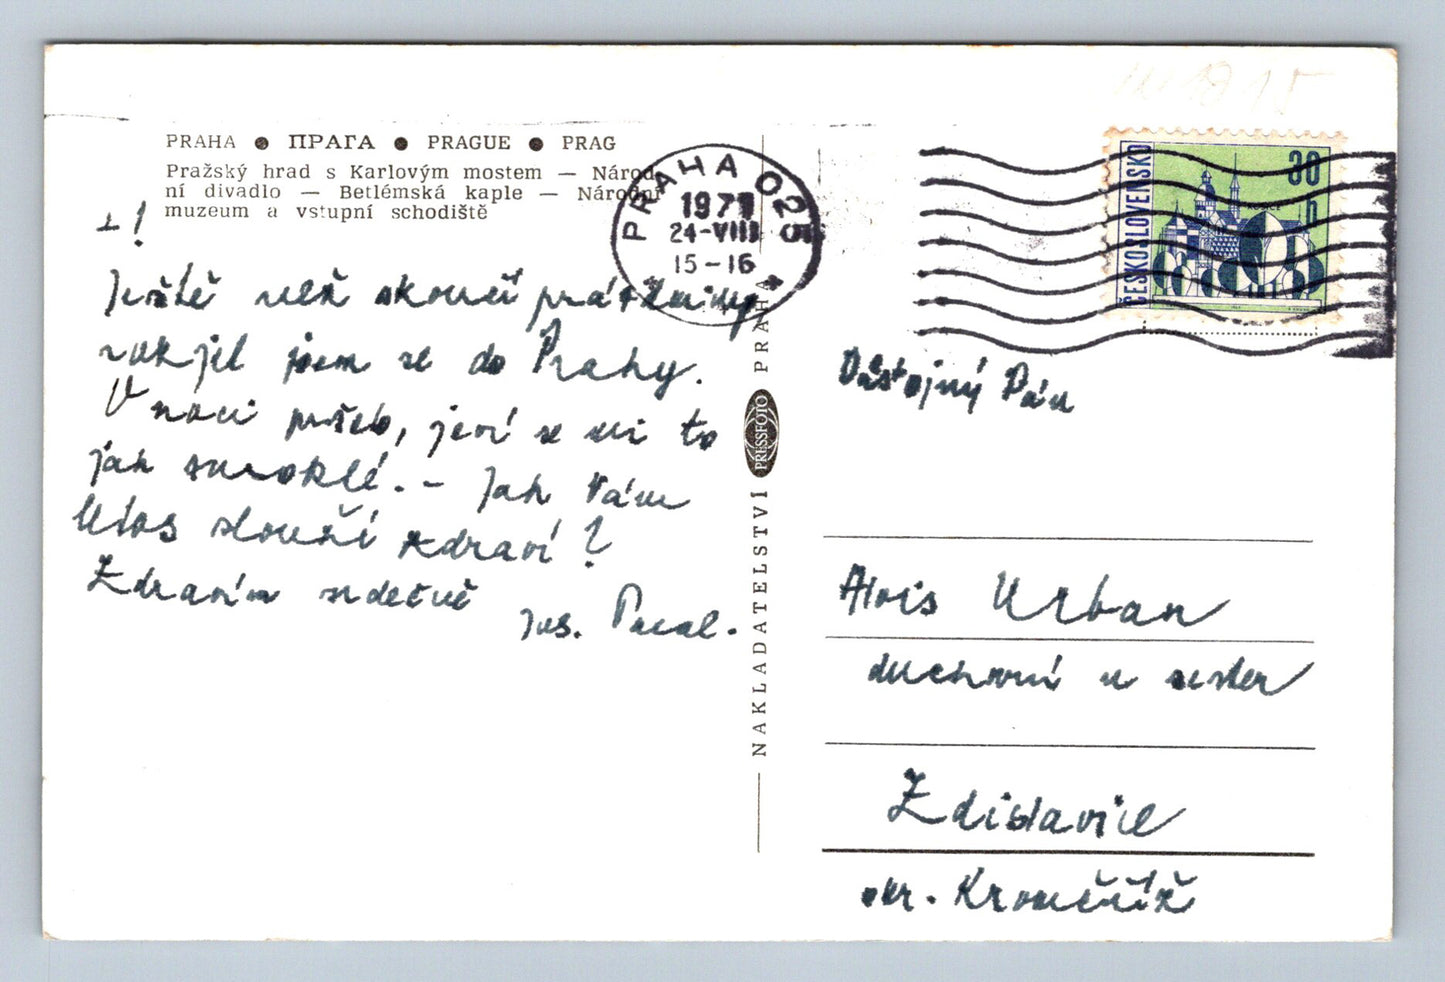 PRAHA ● ПРАГА ● PRAGUE ● PRAG
Pražský hrad s Karlovým mostem — Národ-
ní divadlo — Betlémská kaple — Národní
muzeum a vstupní schodiště
+!
Ještě než skončí prázdniny
zakjel jsem se do Prahy.
V noci pršelo, jení se mi to
jak smoklé. - Jak Vám
Otos slouží zdraví?
Zdravím srdečně
Jos. Pucal.
PRAHA 025
1979
24-VIII
15-16
NAKLADATELSTVÍ PRESSFOTO PRAHA
ČESKOSLOVENSKO
30
h
Důstojný Pán
Alois Urban
duchovní u sester
Zdislavice
okr. Kroměříž